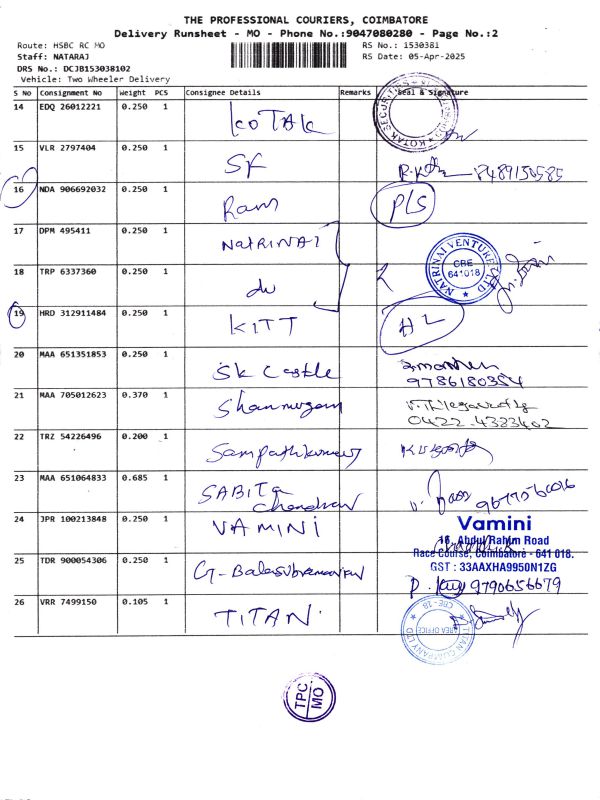 THE PROFESSIONAL COURIERS, COIMBATORE
Delivery Runsheet - MO - Phone No.:9047080280 - Page No.:2
Route: HSBC RC MO
Staff: NATARAJ
DRS No.: DCJB153038102
Vehicle: Two Wheeler Delivery
RS No.: 1530381
RS Date: 05-Apr-2025
S No Consignment No Weight PCS Consignee Details Remarks Seal & Signature
14 EDQ 26012221 0.250 1 KOTAK
KOTAK SECURITIES
15 VLR 2797404 0.250 1 SF
16 NDA 906692032 0.250 1 Ram PLS
17 DPM 495411 0.250 1 NATRINAI
NATRINAI VENTURE LTD
CBE
641018
18 TRP 6337360 0.250 1 do
19 HRD 312911484 0.250 1 KITT HL
20 MAA 651351853 0.250 1 SK Castle
9786180354
21 MAA 705012623 0.370 1 Shanmugam
0422-4333402
22 TRZ 54226496 0.200 1 Sampathkumar
23 MAA 651064833 0.685 1 SABITA
Chandran
24 JPR 100213848 0.250 1 VAMINI
Vamini
16, Abdul Rahim Road
Race Course, Coimbatore - 641 018.
GST : 33AAXHA9950N1ZG
25 TDR 900054306 0.250 1 G-Balasubramanian
9790656679
26 VRR 7499150 0.105 1 TITAN
TITAN COMPANY LTD
AREA OFFICE
CBE-18
TPC
MO